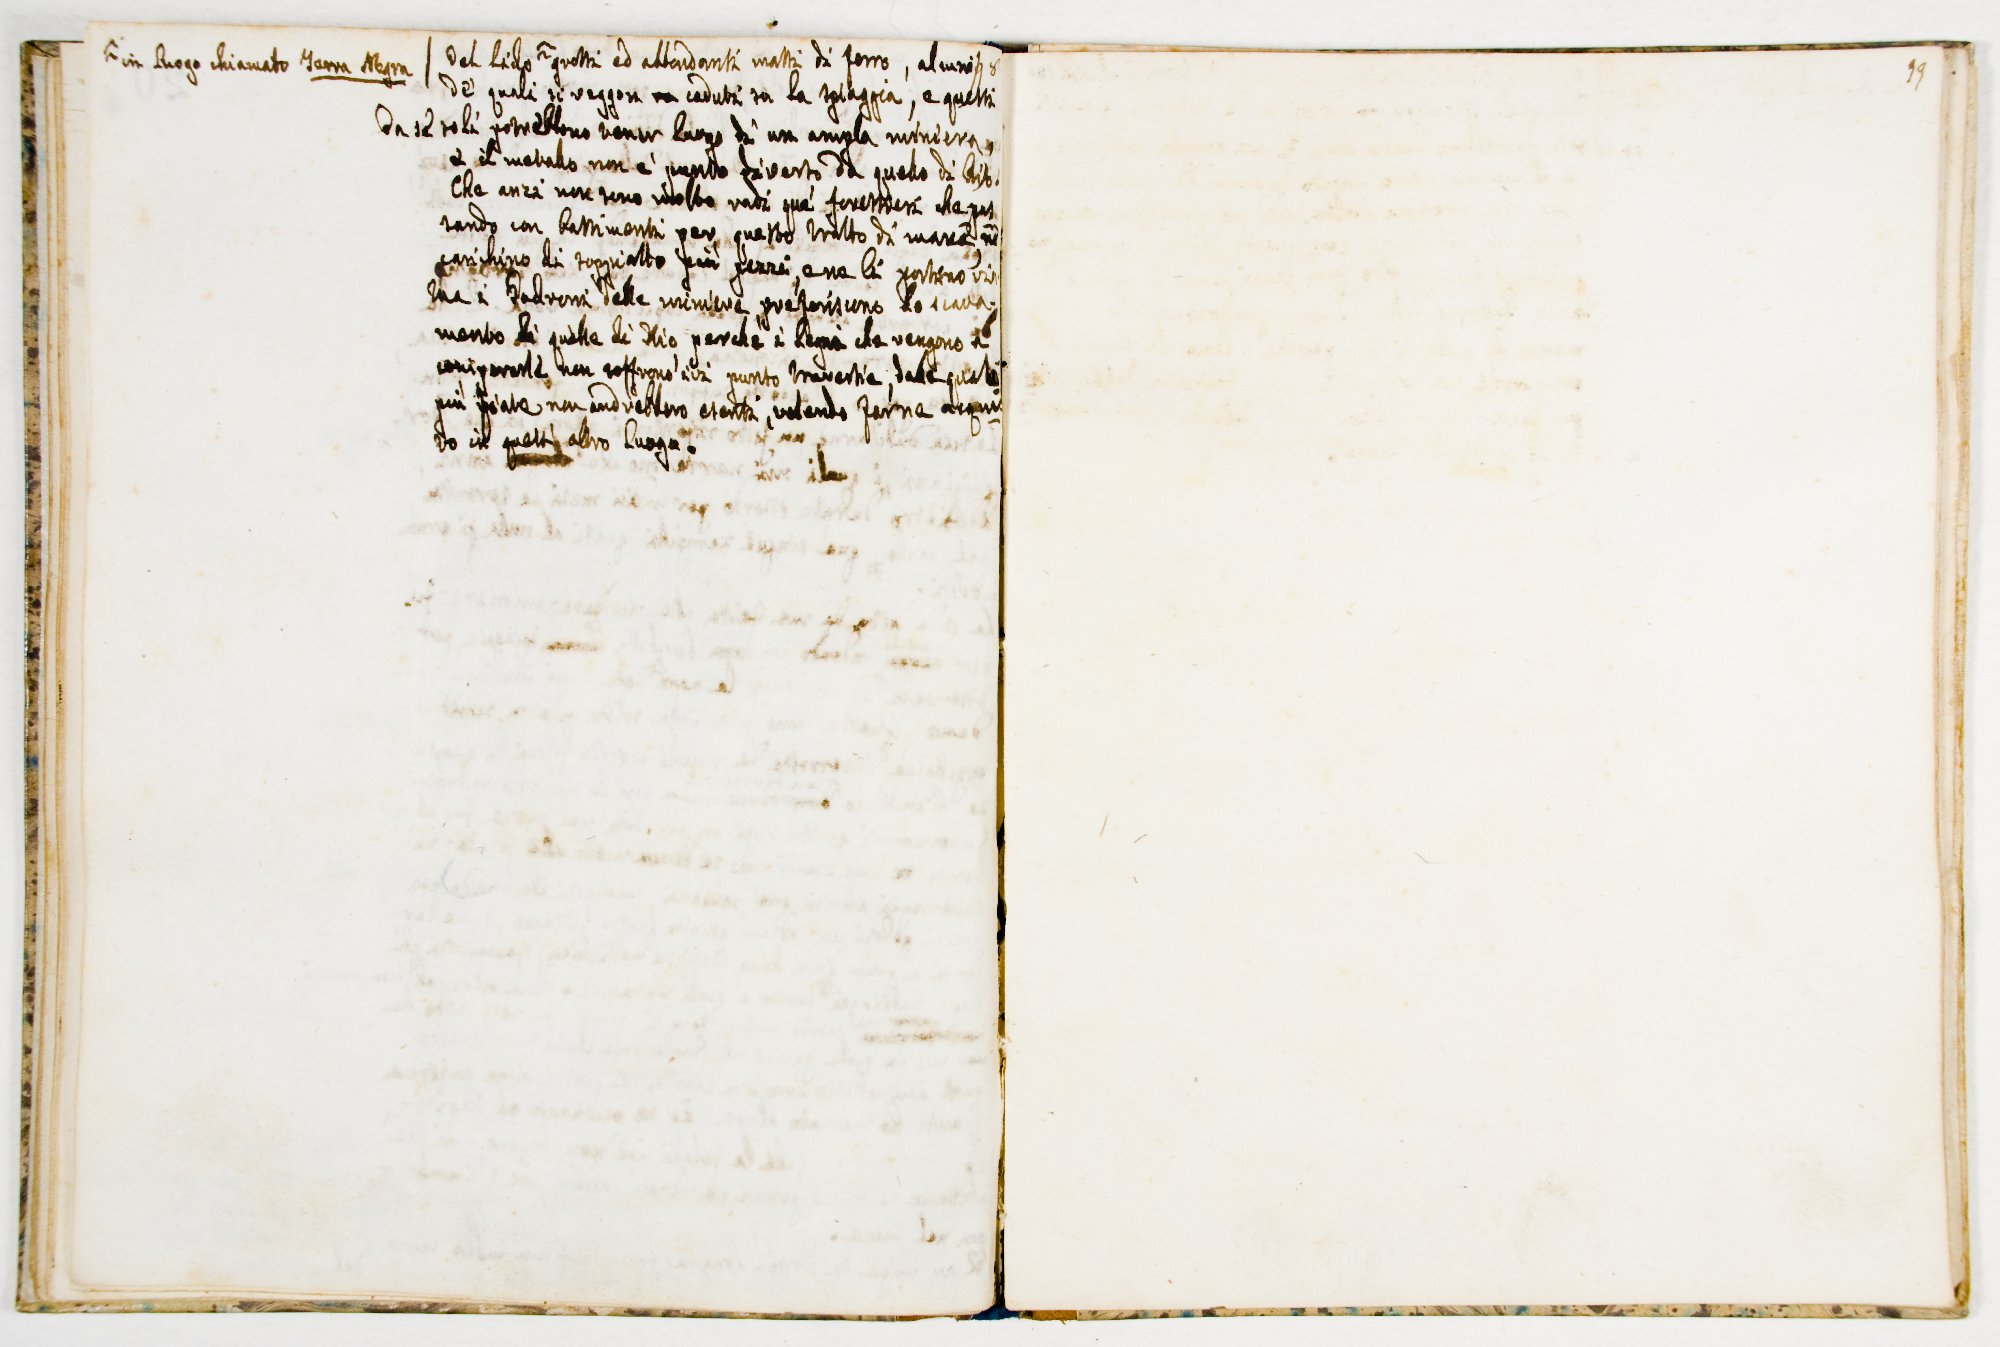 in luogo chiamato Terra Negra
del lido grossi ed abbondanti massi di ferro, alcuni
de' quali si veggon caduti su la spiaggia, e questi
da sè soli potrebbono tener luogo di un ampla miniera,
e il metallo non è punto diverso da quello di Rio.
Che anzi non sono molto radi que' forestieri che pas
sando con bastimenti per questo tratto di mare ne
carichino di soppiatto più pezzi, e ne li portino via
Ma i Padroni delle miniere preferiscono lo scava-
mento di quelle di Rio perché i legni che vengono a
comperarle non soffrono ivi punto traversie, dalle quali
più fiate non andrebbero esenti, volendo farne acqui
sto in quest' altro luogo.
99